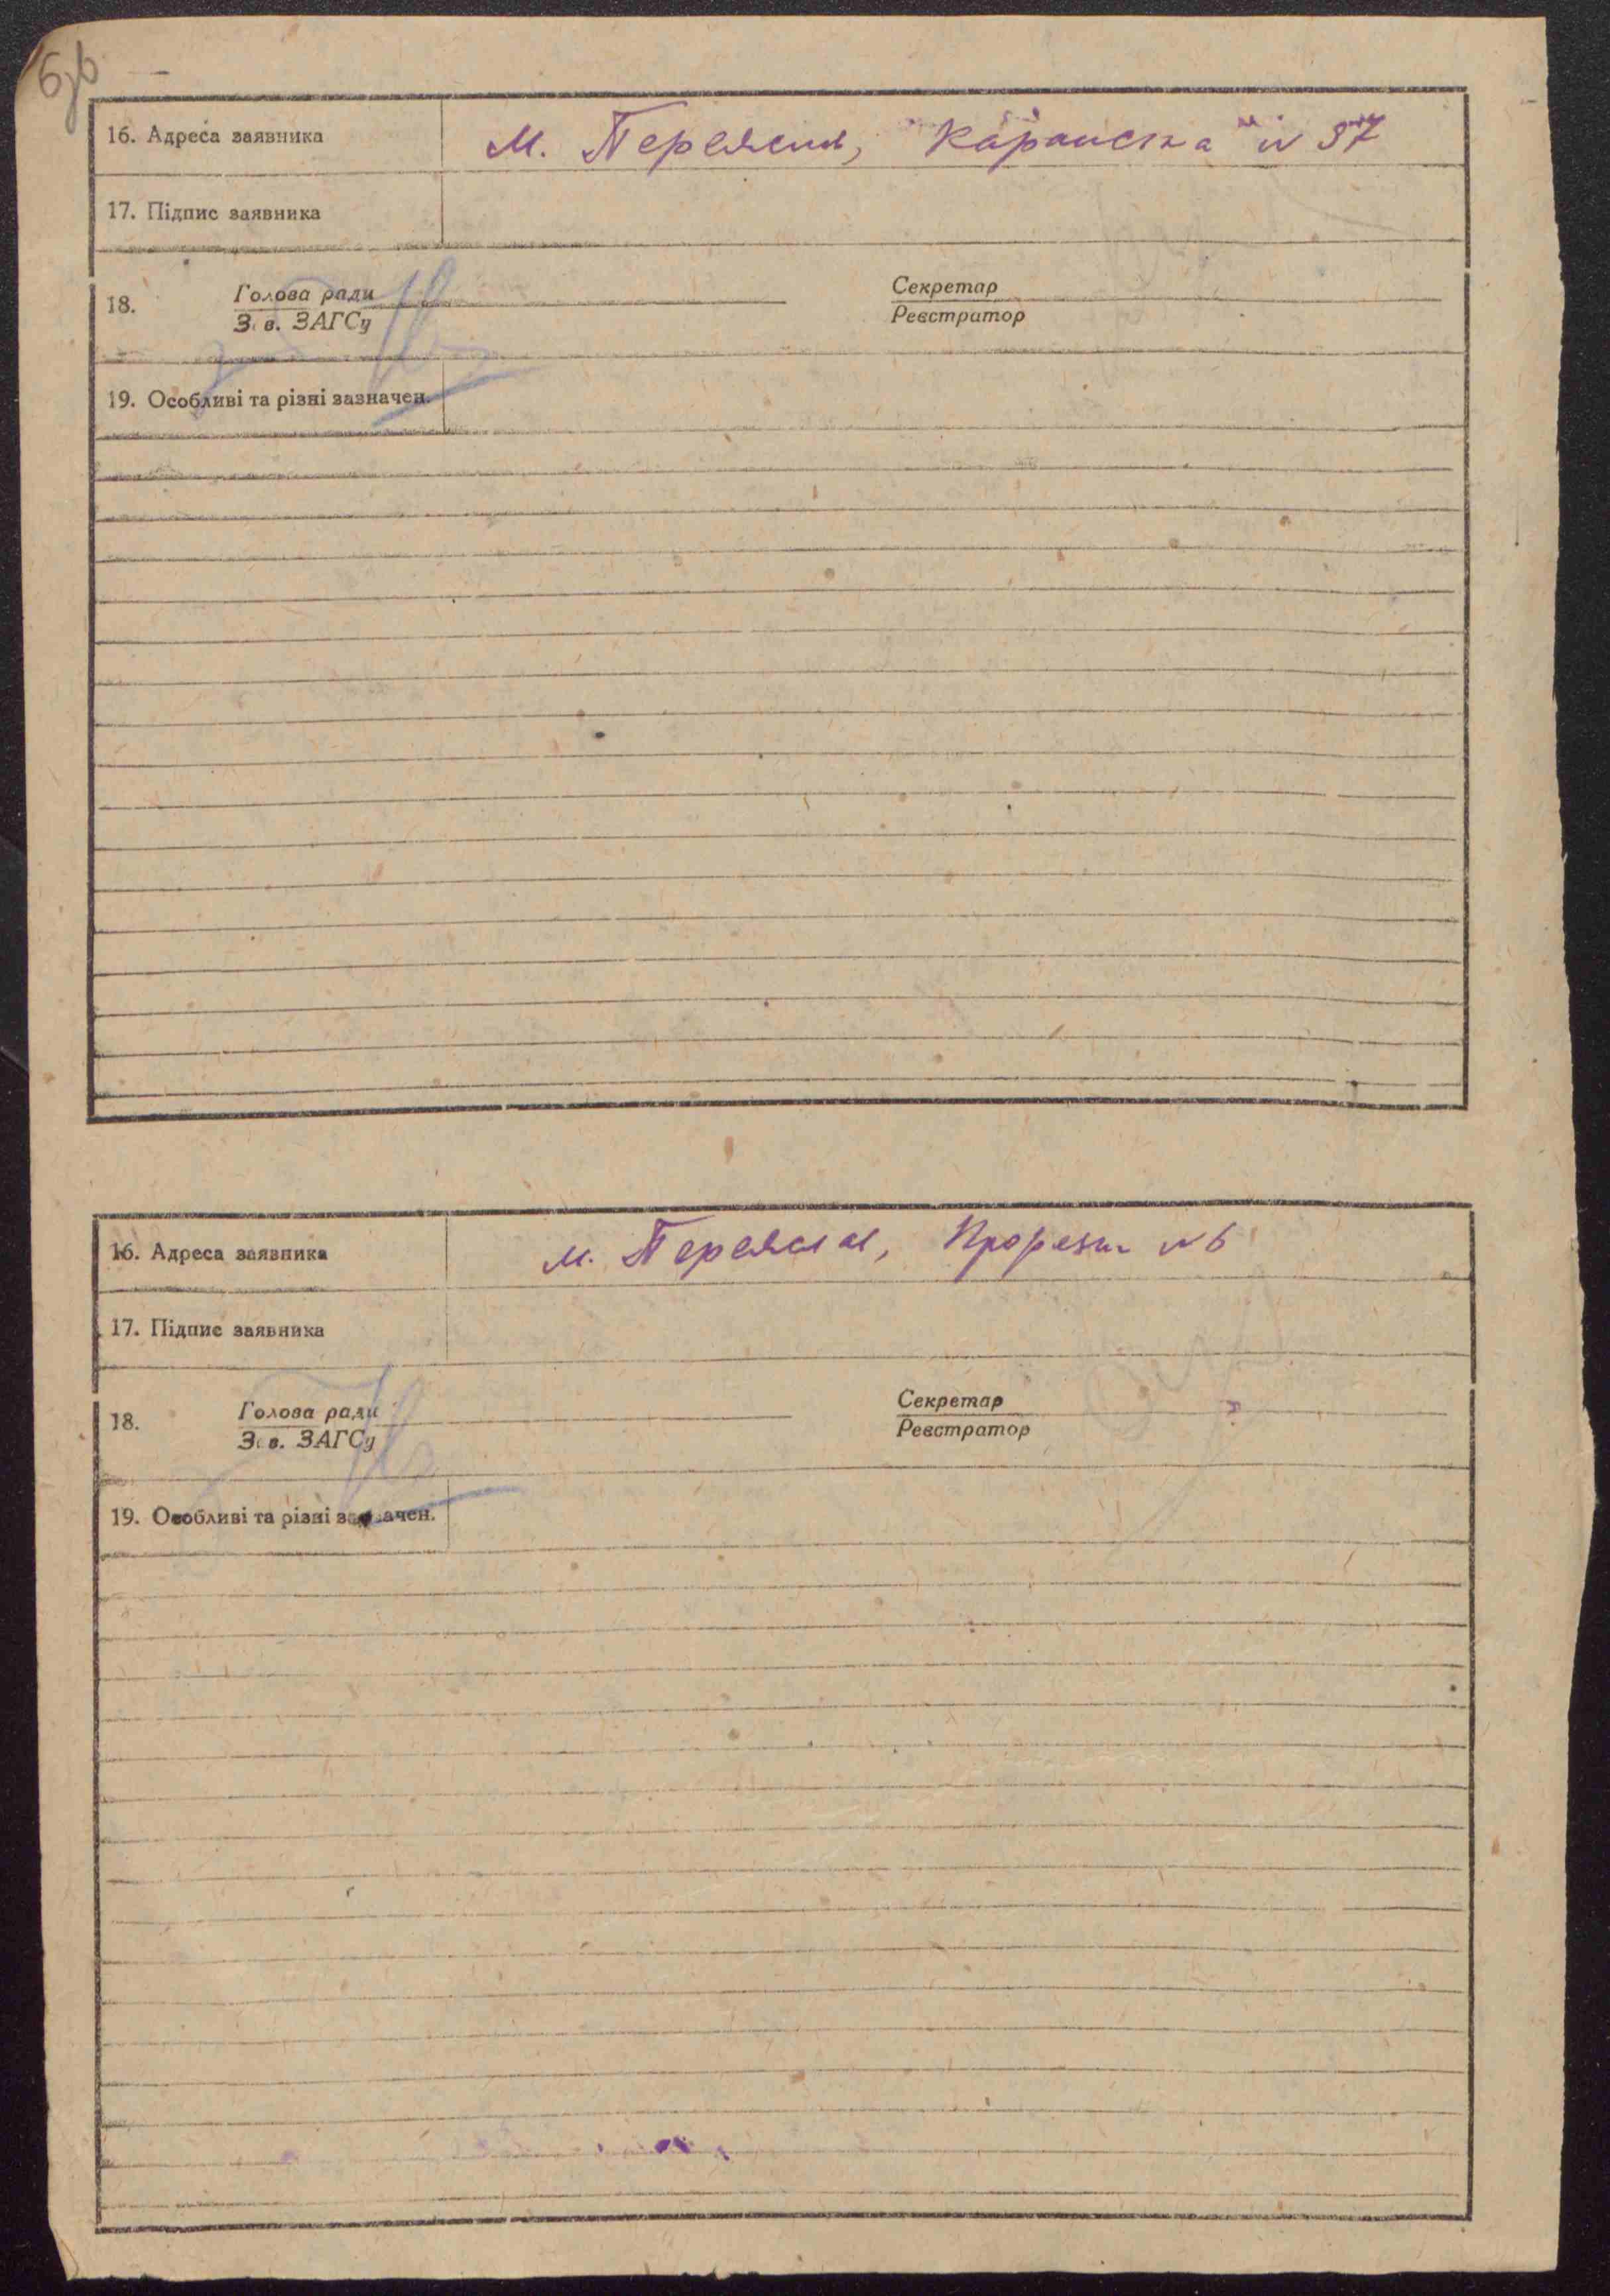 16. Адреса заявника м. Переяслав, Каранська № 37
17. Підпис заявника
18. Голова ради Секретар
Зав. ЗАГСу Реєстратор
19. Особливі та різні зазначен.
16. Адреса заявника м. Переяслав, № 6
17. Підпис заявника
18. Голова ради Секретар
Зав. ЗАГСу Реєстратор
19. Особливі та різні зазначен.